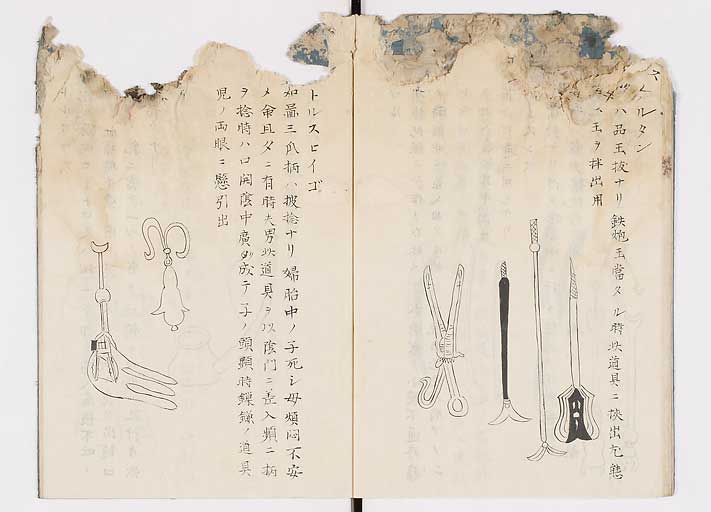 ルタン
ハ品玉抜ナリ 鉄炮玉當タル時此道具ニ挾出
玉ヲ拝出用
トルスロイゴ
如圖三爪柄ハ捩捻ナリ 婦胎中ノ子死シ母煩悶不安
メ命且タニ有時夫男此道具ヲ以陰門ニ差入類ニ柄
ヲ捻時ハ口開陰中廣ク成テ子ノ頭顕時鐶鎌ノ道具
児ノ両眼ニ懸引出